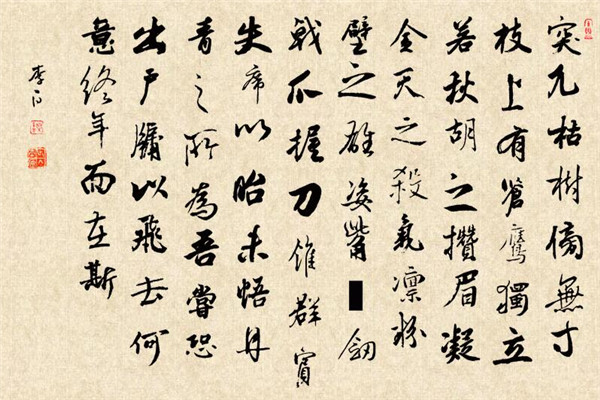 突兀枯樹傍無寸
枝上有蒼鷹獨立
若秋胡之攢眉凝
金天之殺氣凛粉
壁之雄姿觜■劒
戟爪握刀錐群賓
失席以眙未悟丹
青之所為吾嘗恐
出戶牖以飛去何
意終年而在斯
李白